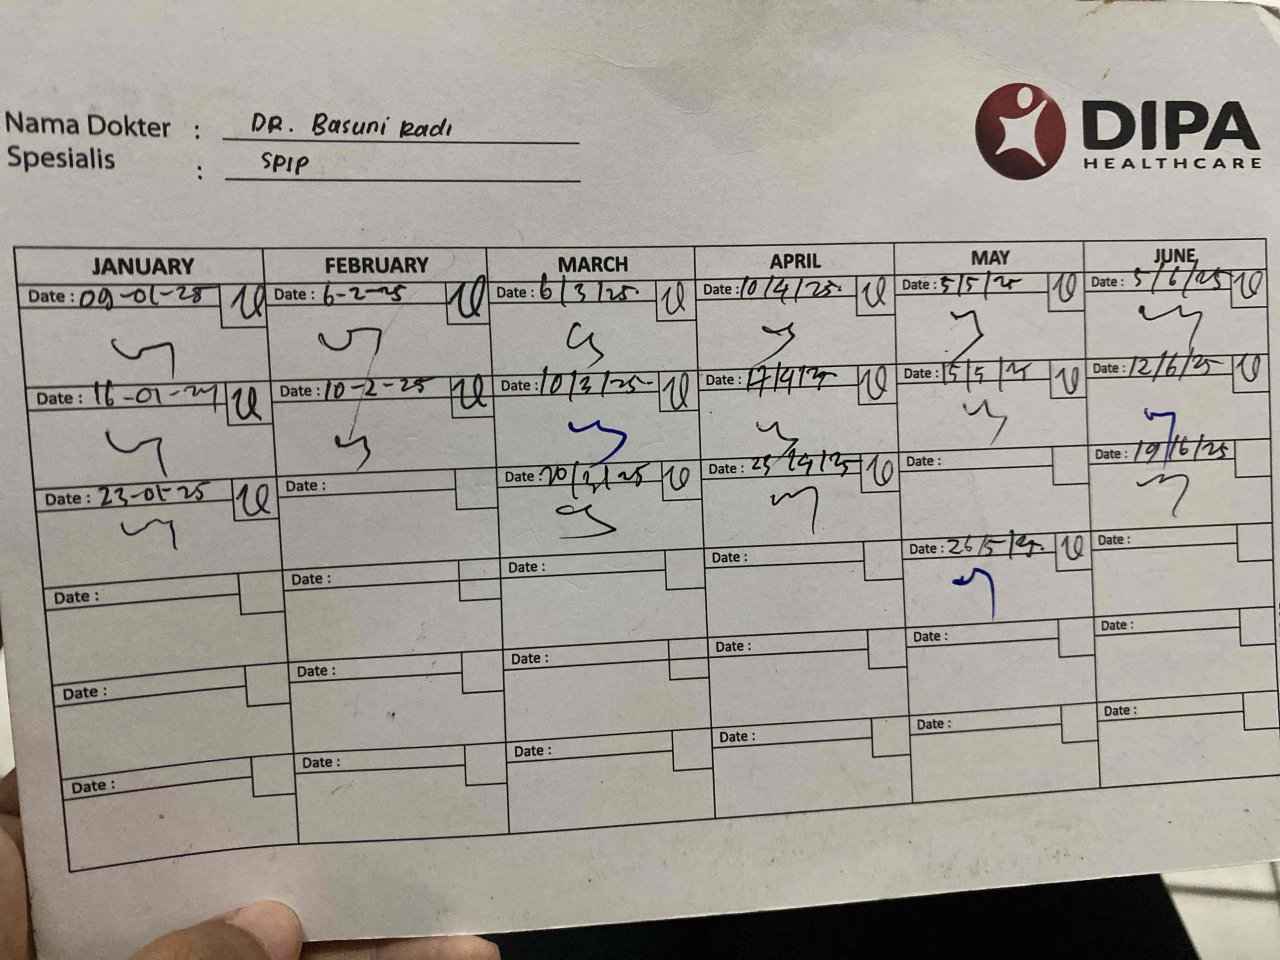 Nama Dokter : DR. Basuni Radi
Spesialis : SPJP
DIPA
HEALTHCARE
JANUARY FEBRUARY MARCH APRIL MAY JUNE
Date : 09-01-25 Date : 6-2-25 Date : 6/3/25 Date : 10/4/25 Date : 5/5/25 Date : 5/6/25
Date : 16-01-25 Date : 10-2-25 Date : 10/3/25 Date : 17/4/25 Date : 15/5/25 Date : 12/6/25
Date : 23-01-25 Date : Date : 20/3/25 Date : Date : Date : 19/6/25
Date : Date : Date : Date : Date : 26/5/25 Date :
Date : Date : Date : Date : Date : Date :
Date : Date : Date : Date : Date : Date :